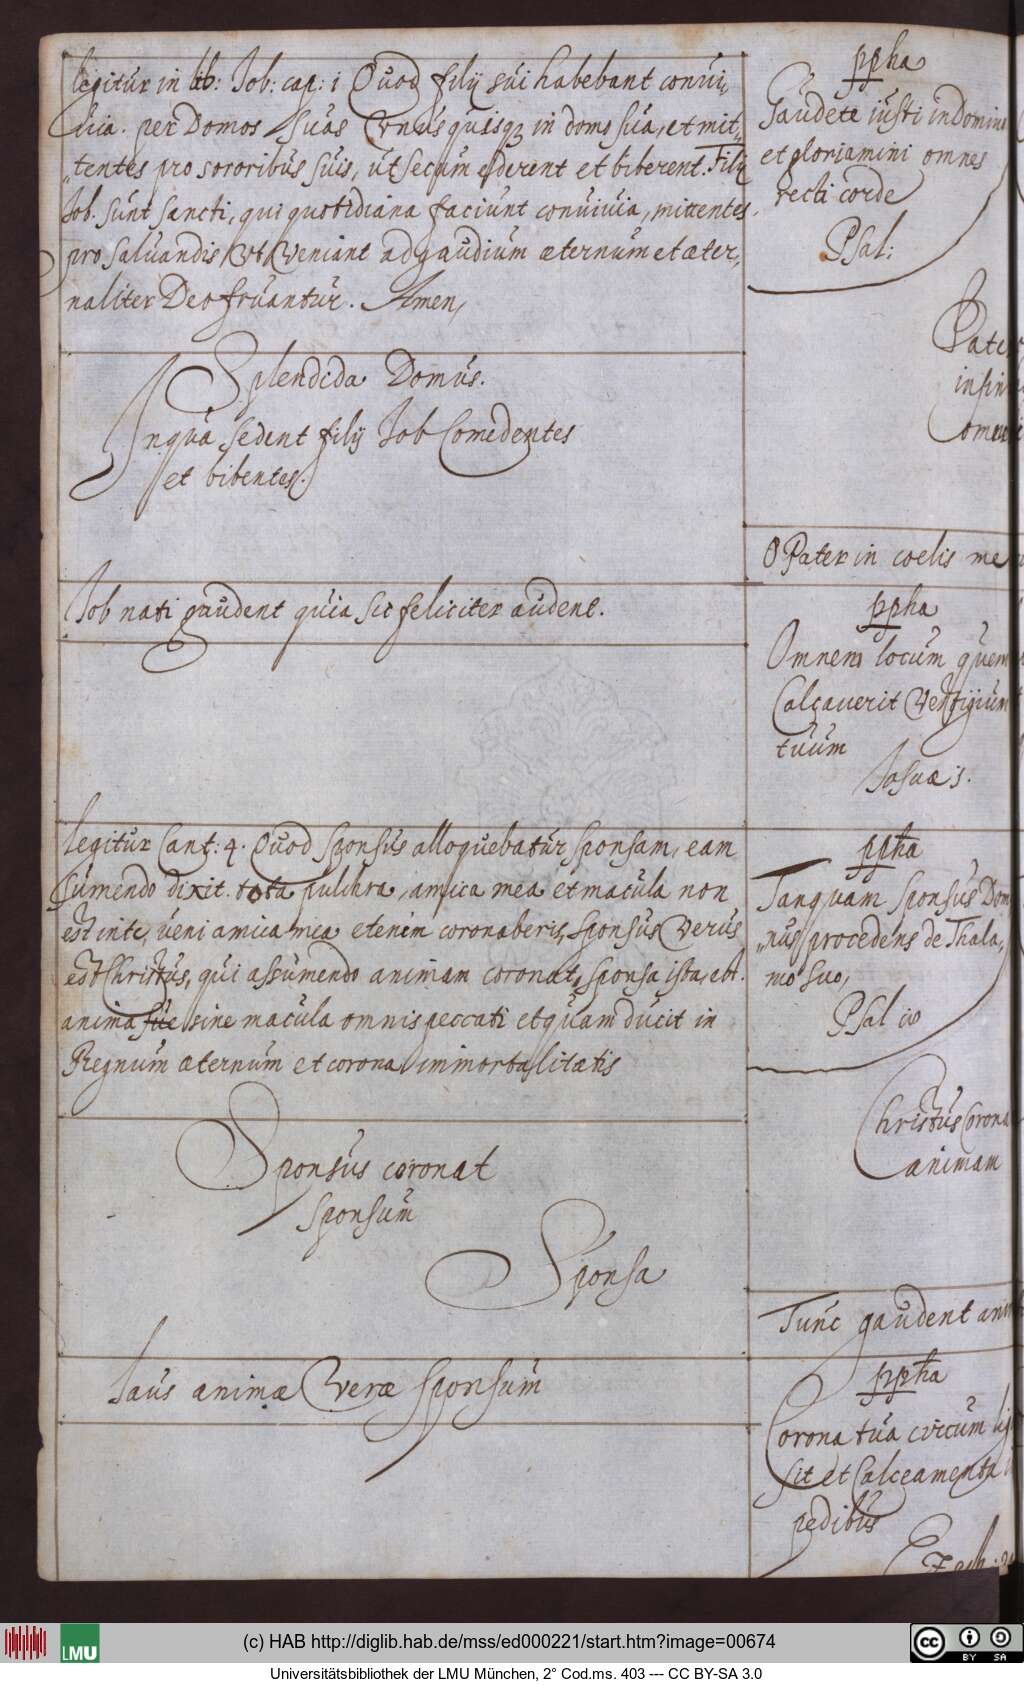 legitur in lib: Job: cap: 1 Quod filÿ sui habebant conui„
uia. per Domos Suas Vnusquisqz in domo sua, et mit„
„tentes pro sororibus suis, ut secum ederent et biberent. Filÿ
Job. sunt sancti, qui quotidiana faciunt conuiuia, mittentes
pro saluandis Vt Veniant ad gaudium æternum et æter„
naliter Deo fruantur. Amen,
Splendida Domus.
In qua sedent filÿ Job Comedentes
et bibentes.
Job nati gaudent quia sic feliciter audent.
legitur Cant: 4. Quod Sponsus alloquebatur sponsam, eam
sumendo dixit. tota pulchra, amica mea et macula non
est in te, ueni amica mea etenim coronaberis, Sponsus Verus
est Christus, qui assumendo animam coronat, sponsa ista, est
anima sue sine macula omnis peccati et quam ducit in
Regnum æternum et corona immortalitatis
Sponsus coronat
sponsum
Sponsa
laus animæ Veræ sponsum
ppha
Gaudete iusti in Domino
et gloriamini omnes
recti corde
Psal:
Pater
infini
omni
O Pater in coelis me
ppha
Omnem locum quem
Calcauerit Vestigium
tuum
Josuæ 1.
ppha
Tanquam Sponsus Dom
„nus procedens de Thala„
mo suo,
Psal
Christus Corona
animam
Tunc gaudent ani
ppha
Corona tua circum lig
sit et Calceamenta
pedibus
Ezech:
(c) HAB http://diglib.hab.de/mss/ed000221/start.htm?image=00674
LMU
cc BY SA
Universitätsbibliothek der LMU München, 2° Cod.ms. 403 --- CC BY-SA 3.0